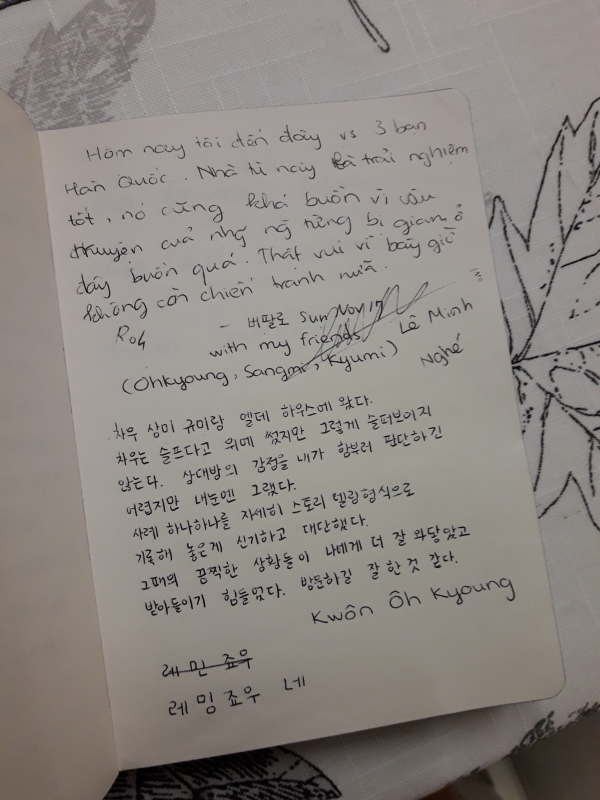 Hôm nay tôi đến đây vs 3 bạn
Hàn Quốc. Nhà tù này là trải nghiệm
tốt, nó cũng khá buồn vì câu
chuyện của nhg ng từng bị giam ở
đây buồn quá. Thật vui vì bây giờ
không còn chiến tranh nữa.
- 버팔로 Sun Nov 17
with my friends
Lê Minh
(Ohkyoung, Sangmi, Kyumi)
Nghé
차우 상미 규미랑 엘데 하우스에 왔다.
차우는 슬프다고 위에 썼지만 그렇게 슬퍼보이지
않는다. 상대방의 감정을 내가 함부러 판단하긴
어렵지만 내눈엔 그랬다.
사례 하나하나를 자세히 스토리 텔링형식으로
기록해 놓은게 신기하고 대단했다.
그때의 끔찍한 상황들이 나에게 더 잘 와닿았고
받아들이기 힘들었다. 방문하길 잘 한 것 같다.
Kwôn Ôh Kyoung
레 민 죠우
레 밍 죠우 네